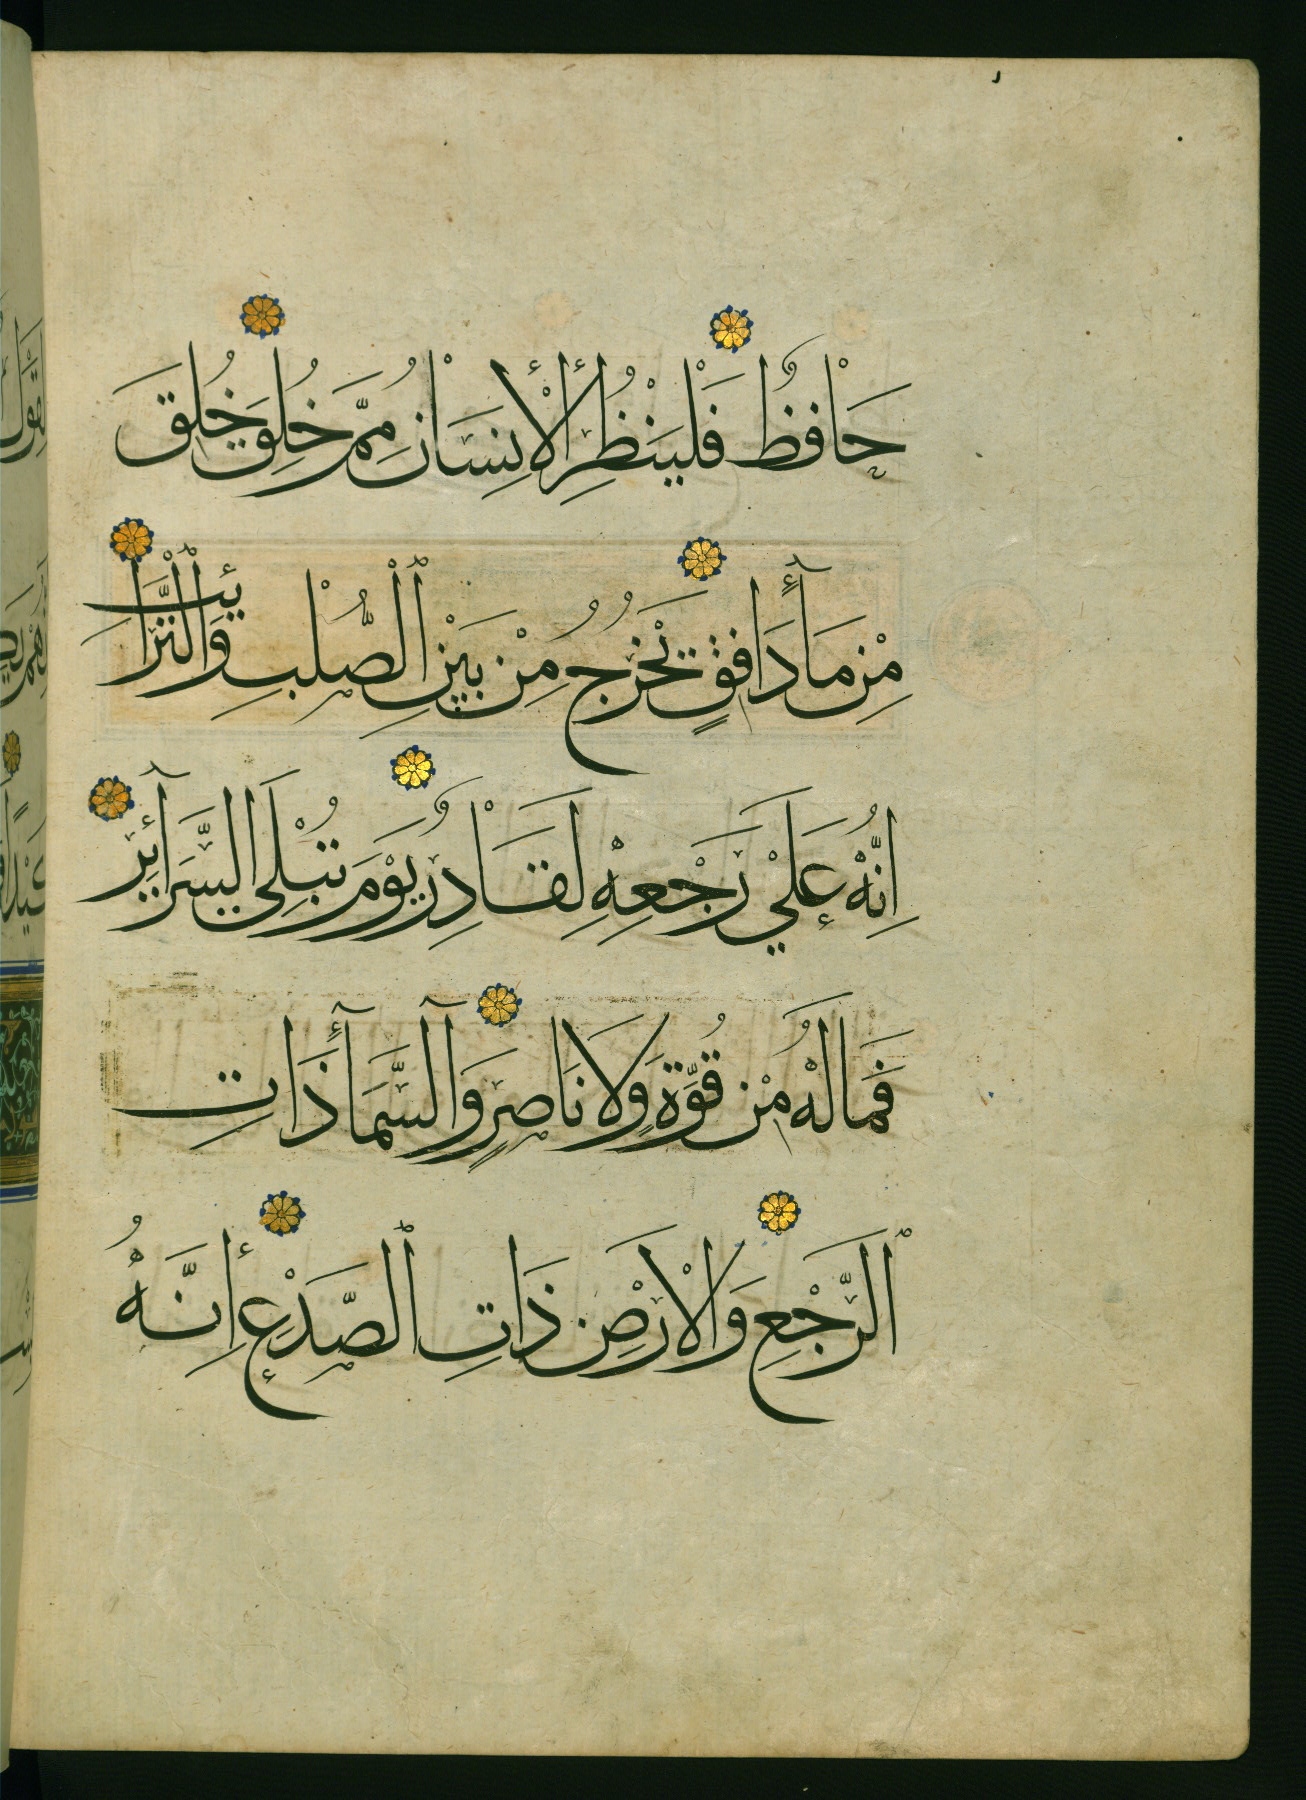 حَافِظٌ فَلْيَنْظُرِ ٱلْأِنْسَانُ مِمَّ خُلِقَ خُلِقَ
مِنْ مَآءٍ دَافِقٍ يَخْرُجُ مِنْ بَيْنِ ٱلْصُّلْبِ وَٱلْتَّرَآئِبِ
اِنَّهُ عَلَي رَجْعِهِ لَقَادِرٌ يَوْمَ تُبْلَي السَّرَآئِرُ
فَمَالَهُ مِنْ قُوَّةٍ وَلَا نَاصِرٍ وَالسَّمَآءِ ذَاتِ
ٱلرَّجْعِ وَالْاَرْضِ ذَاتِ ٱلصَّدْعِ إِنَّهُ